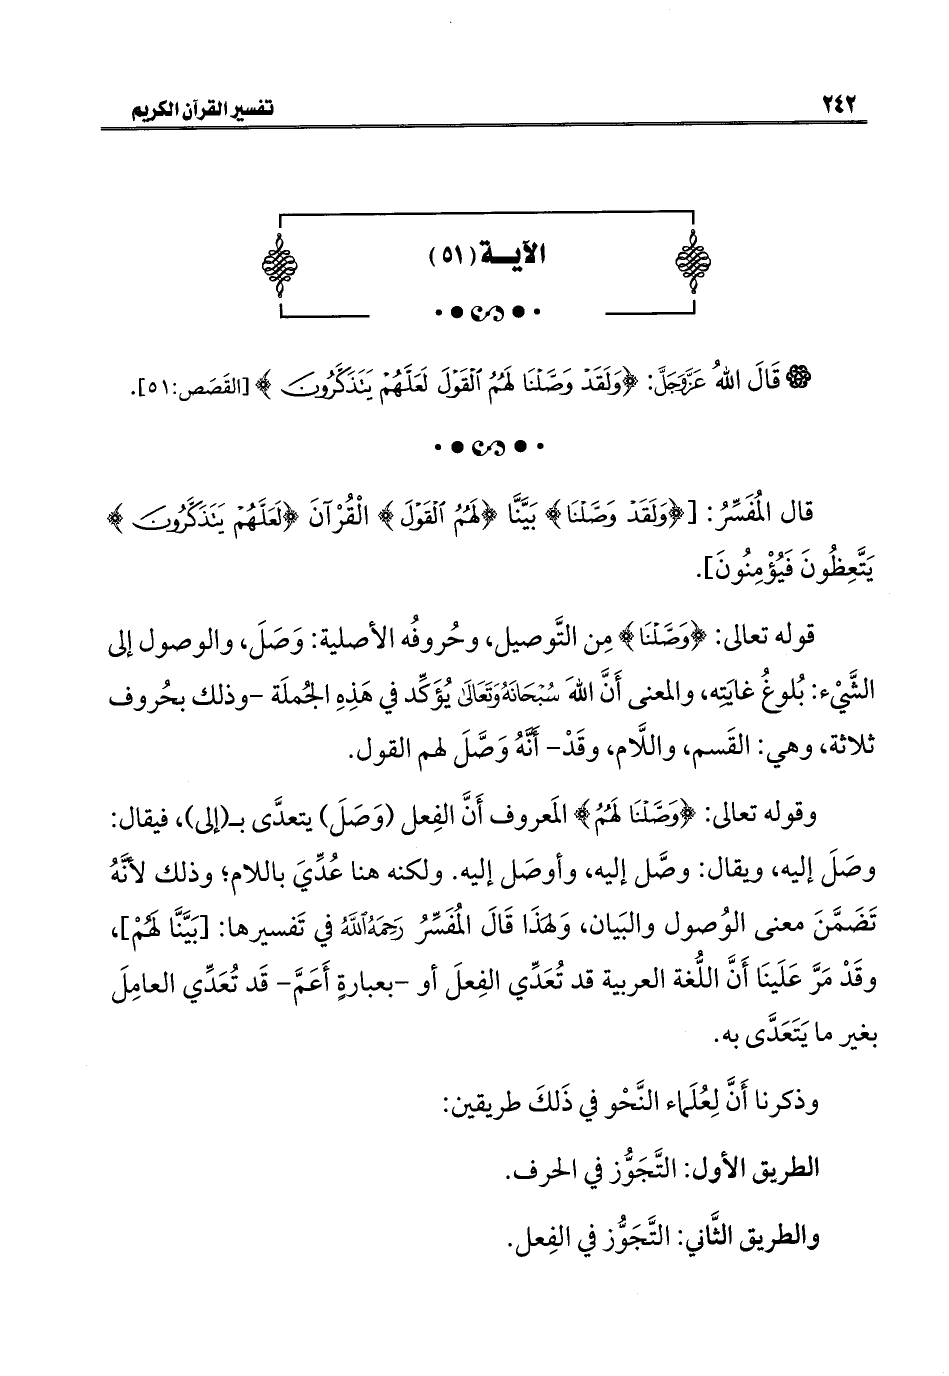 ٢٤٢
تفسير القرآن الكريم
الآيـــة (٥١)
قَالَ اللهُ عَزَّوَجَلَّ: ﴿وَلَقَدْ وَصَّلْنَا لَهُمُ الْقَوْلَ لَعَلَّهُمْ يَتَذَكَّرُونَ﴾ [القَصَص:٥١].
قال المُفَسِّرُ: [﴿وَلَقَدْ وَصَّلْنَا﴾ بَيَّنَّا ﴿لَهُمُ الْقَوْلَ﴾ الْقُرْآنَ ﴿لَعَلَّهُمْ يَتَذَكَّرُونَ﴾
يَتَّعِظُونَ فَيُؤْمِنُونَ].
قوله تعالى: ﴿وَصَّلْنَا﴾ مِن التَّوصيل، وحُروفُه الأصلية: وَصَلَ، والوصول إلى
الشَّيْء: بُلوغُ غايَتِه، والمعنى أَنَّ اللهَ سُبْحَانَهُ وَتَعَالَى يُؤَكِّد في هَذِهِ الجُملَة -وذلك بحُروف
ثلاثة، وهي: القَسم، واللَّام، وقَدْ- أَنَّهُ وَصَّلَ لهم القول.
وقوله تعالى: ﴿وَصَّلْنَا لَهُمُ﴾ المَعروف أَنَّ الفِعل (وَصَلَ) يتعدَّى بـ(إلى)، فيقال:
وصَلَ إليه، ويقال: وصَّل إليه، وأوصَل إليه. ولكنه هنا عُدِّيَ باللام؛ وذلك لأَنَّهُ
تَضَمَّنَ معنى الوُصول والبَيان، وَلهَذَا قَالَ المُفَسِّرُ رَحِمَهُ اللَّهُ في تَفسيرها: [بَيَّنَّا لَهُمْ]،
وقَدْ مَرَّ عَلَينَا أَنَّ اللُّغة العربية قد تُعَدِّي الفِعلَ أو -بعبارةٍ أَعَمَّ- قَد تُعَدِّي العامِلَ
بغير ما يَتَعَدَّى به.
وذكرنا أَنَّ لِعُلَماء النَّحْو في ذَلكَ طريقين:
الطريق الأول: التَّجَوُّز في الحرف.
والطريق الثَّاني: التَّجَوُّز في الفِعل.